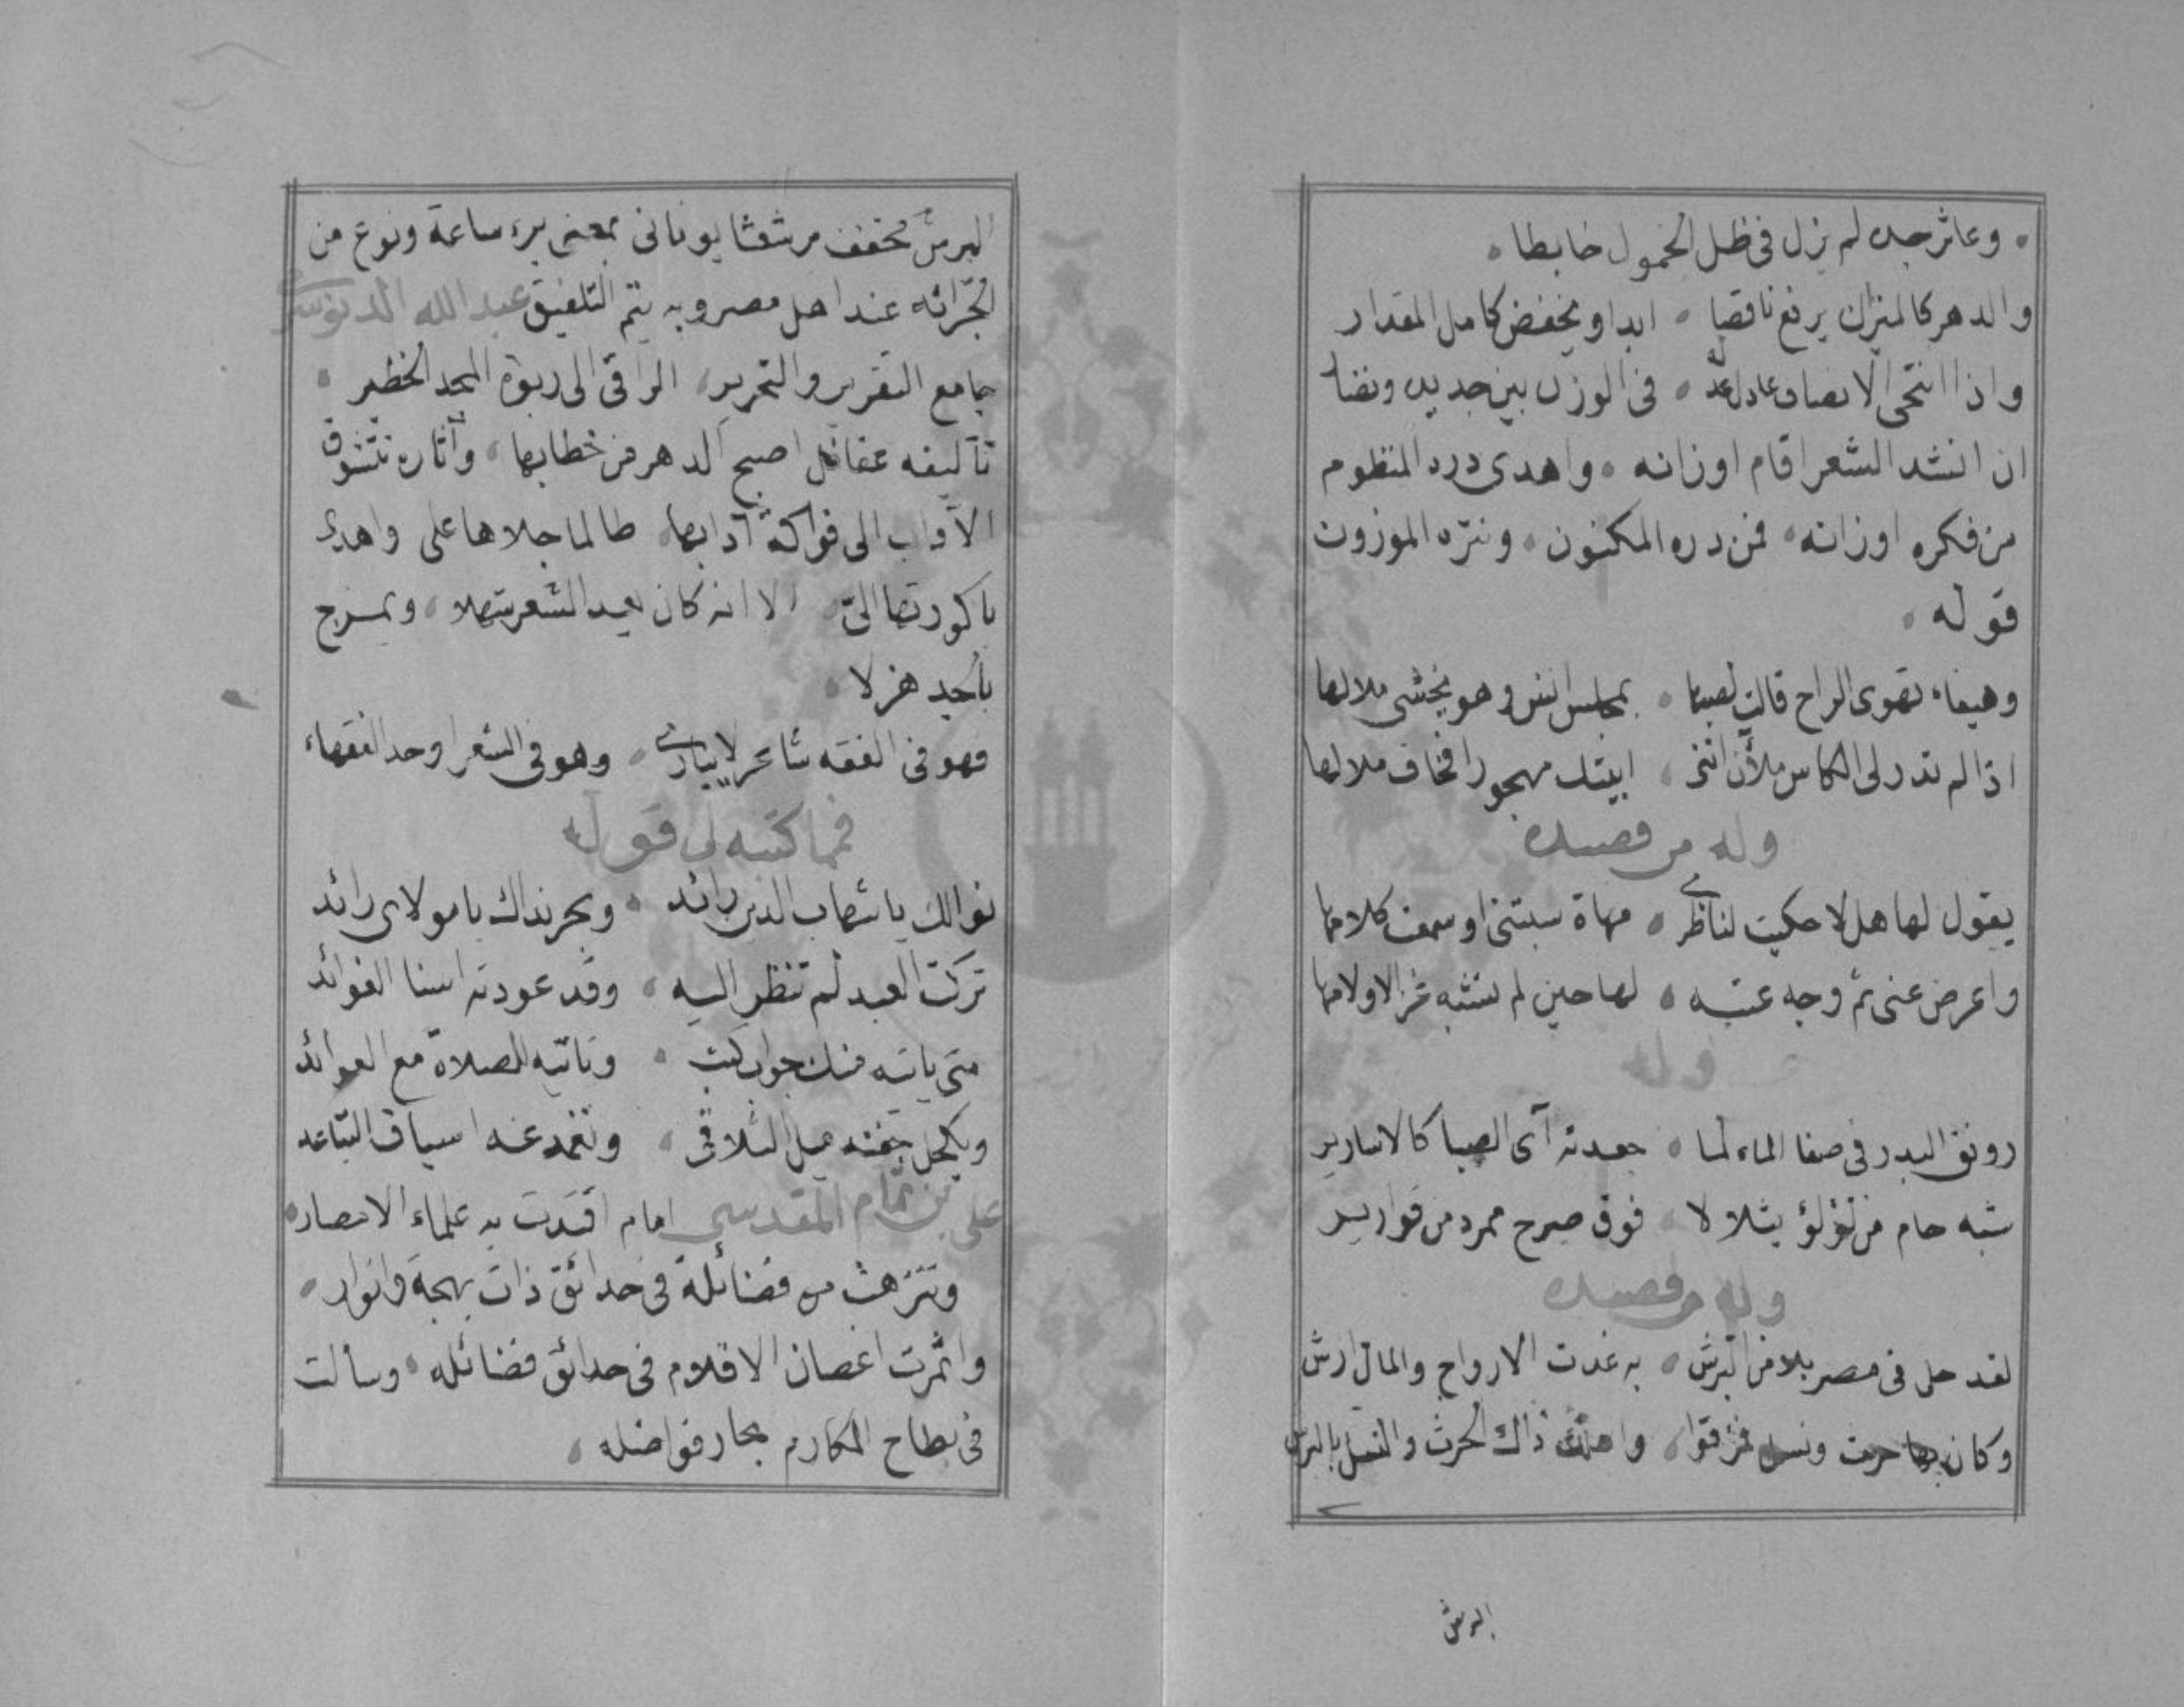 وعاثر جده لم يزل في ظل الخمول خابطا
والدهر كالميزان يرفع ناقصا ابدا ويخفض كامل المقدار
واذا انتحى الانصاف عادل عدله في الوزن بين حديده ونضار
ان انشد الشعر اقام اوزانه واهدى درر المنظوم
من فكره اوزانه فمن دره المكنون ونثره الموزون
قوله
وهيفاء تهوى الراح قالت لصبها بمجلس انس وهو يخشى ملالها
اذا لم تدر لي الكاس ملآن انني ابيتك مهجورا فخاف ملالها
وله من قصيده
يقول لها هل لا حكيت لناظري مهاة سبتني او سمعت كلامها
واعرض عني ثم وجه عتبه لها حين لم تشبه الا ولامها
وله
رونق البدر في صفا الماء لما جعدته آى الصبا كالاسارير
شبه جام من لؤلؤ يتلالا فوق صرح ممرد من قوارير
وله من قصيده
لقد حل في مصر بلا من البرش به غدت الارواح والمال ارش
وكان بها حرث ونسل فمزقوا واهلك ذاك الحرث والنسل بالبرش
البرش
البرش مخفف برشعثا يوناني بمعنى برء ساعة ونوع من
الجرائه عند اهل مصر وبه يتم التلفيق عبد الله الدنوشري
جامع التقرير والتحرير الراقي الى ربوة المجد الخطير
تآليفه عقائل اصبح الدهر من خطابها وآثاره تتشوق
الآداب الى فواكه آدابها طالما جلاها على واهدى
باكورتها الي الا انه كان يعيد الشعر سهلا ويمزج
بالجد هزلا
فهو في الفقه شاعر لا يبارى وهو في الشعر اوحد الفقهاء
فمما كتبه لي قوله
نوالك يا شهاب الدين زائد وبحر نداك يا مولاي رائد
تركت العبد لم تنظر اليه وقد عودته اسنا الفوائد
متى ياتيه منك جواب كتب وتاتيه الصلاة مع العوائد
ويكحل جفنه ميل التلاقي وتغمد عنه اسياف التباعد
علي بن غانم المقدسي امام اقتدت به علماء الامصار
وتنزهت من فضائله في حدائق ذات بهجة وانوار
واثمرت اغصان الاقلام في حدائق فضائله وسالت
في بطاح المكارم بحار فواضله